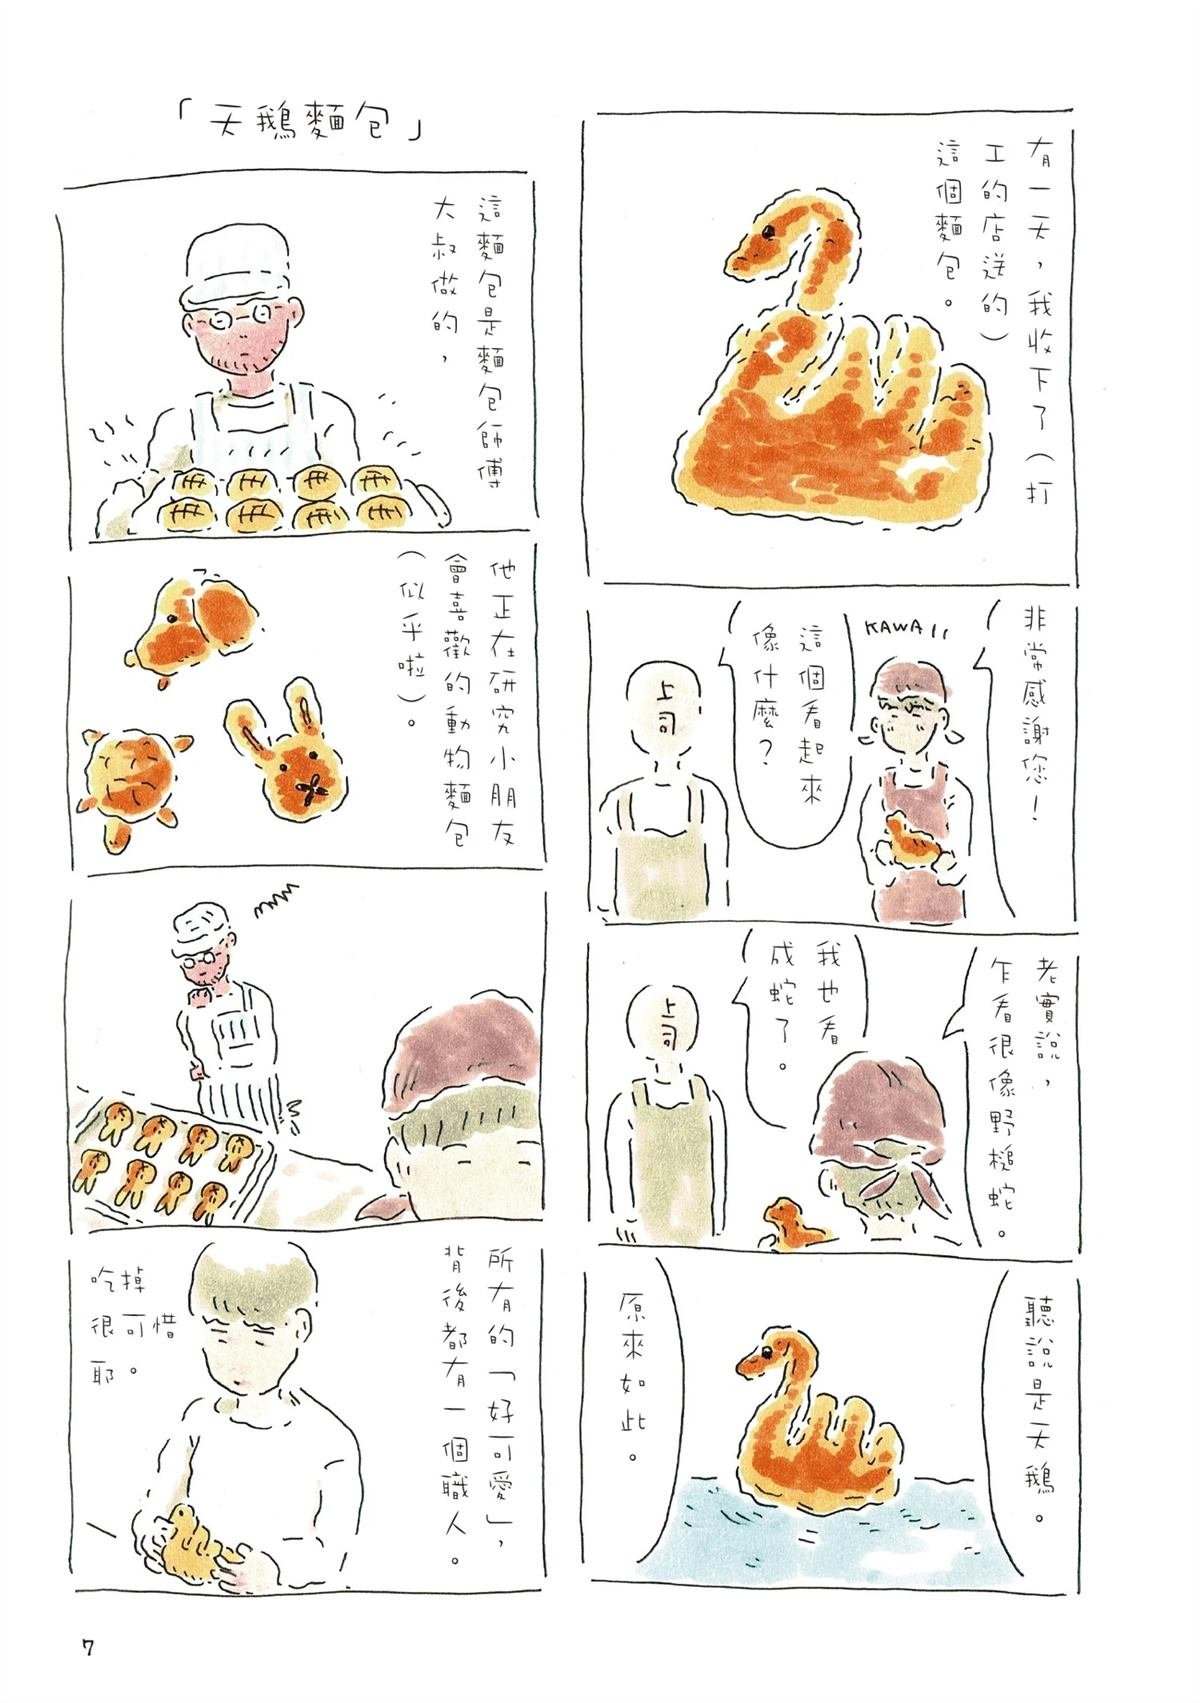 有一天，我收下了（打
工的店送的）
這個麵包。
非常感謝您！
KAWAII
這個看起來
像什麼？
上司
老實說，
乍看很像野槌蛇。
我也看
成蛇了。
上司
聽說是天鵝。
原來如此。
「天鵝麵包」
這麵包是麵包師傅
大叔做的，
他正在研究小朋友
會喜歡的動物麵包
（似乎啦）。
所有的「好可愛」，
背後都有一個職人。
吃掉
很可惜
耶。
7